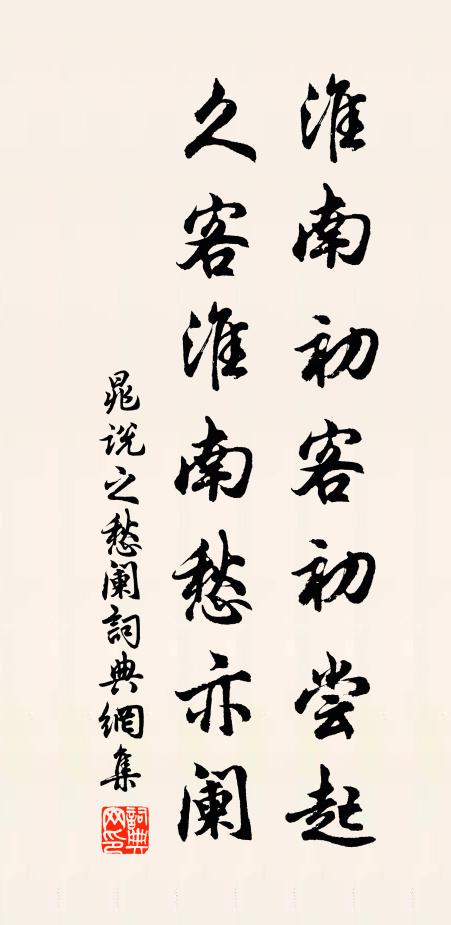 淮南初客初尝起
久客淮南愁亦阑
晁说之愁阑詞典網集
詞典網印